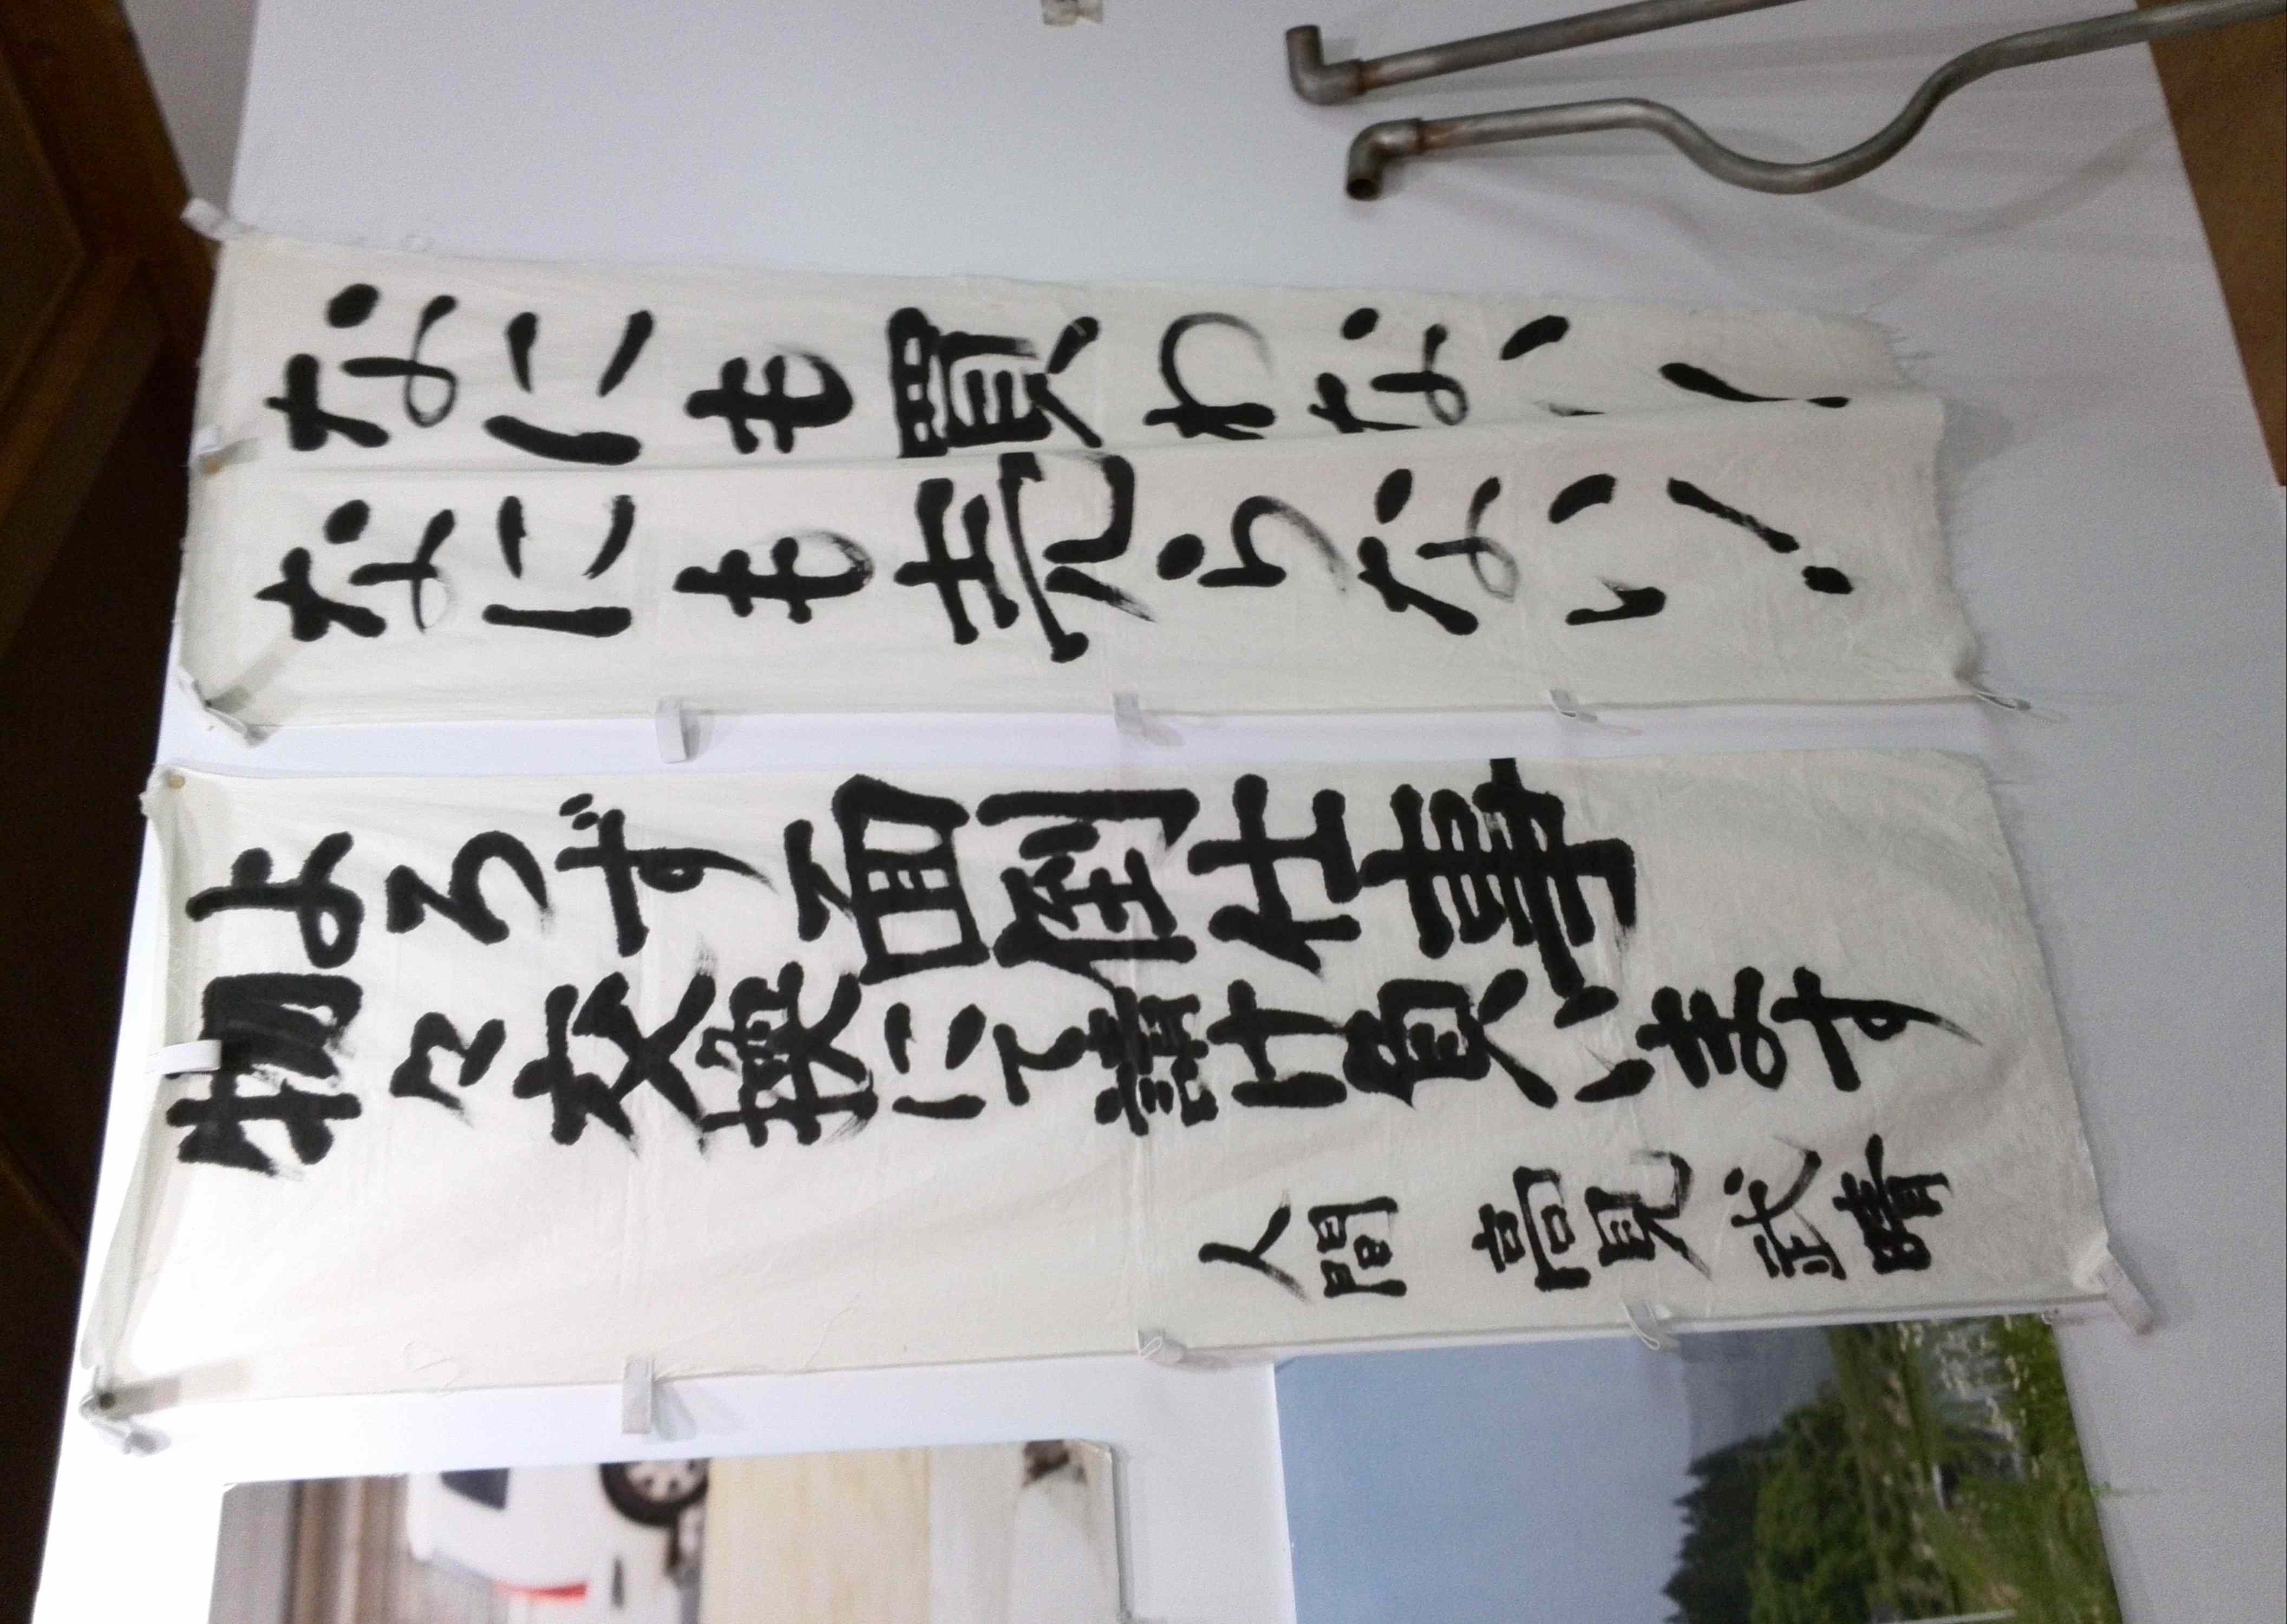 なにも買わない!
なにも売らない!
よろず面倒仕事
物々交換にて請け負います
人間 高見武晴